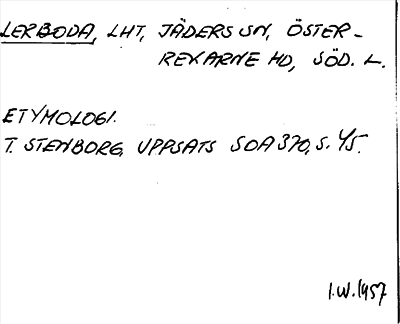 LERBODA, LHT, JÄDERS SN, ÖSTER-
REKARNE HD, SÖD. L.
ETYMOLOGI.
T. STENBORG, UPPSATS SOA 370, S. 45.
I.W. 1957